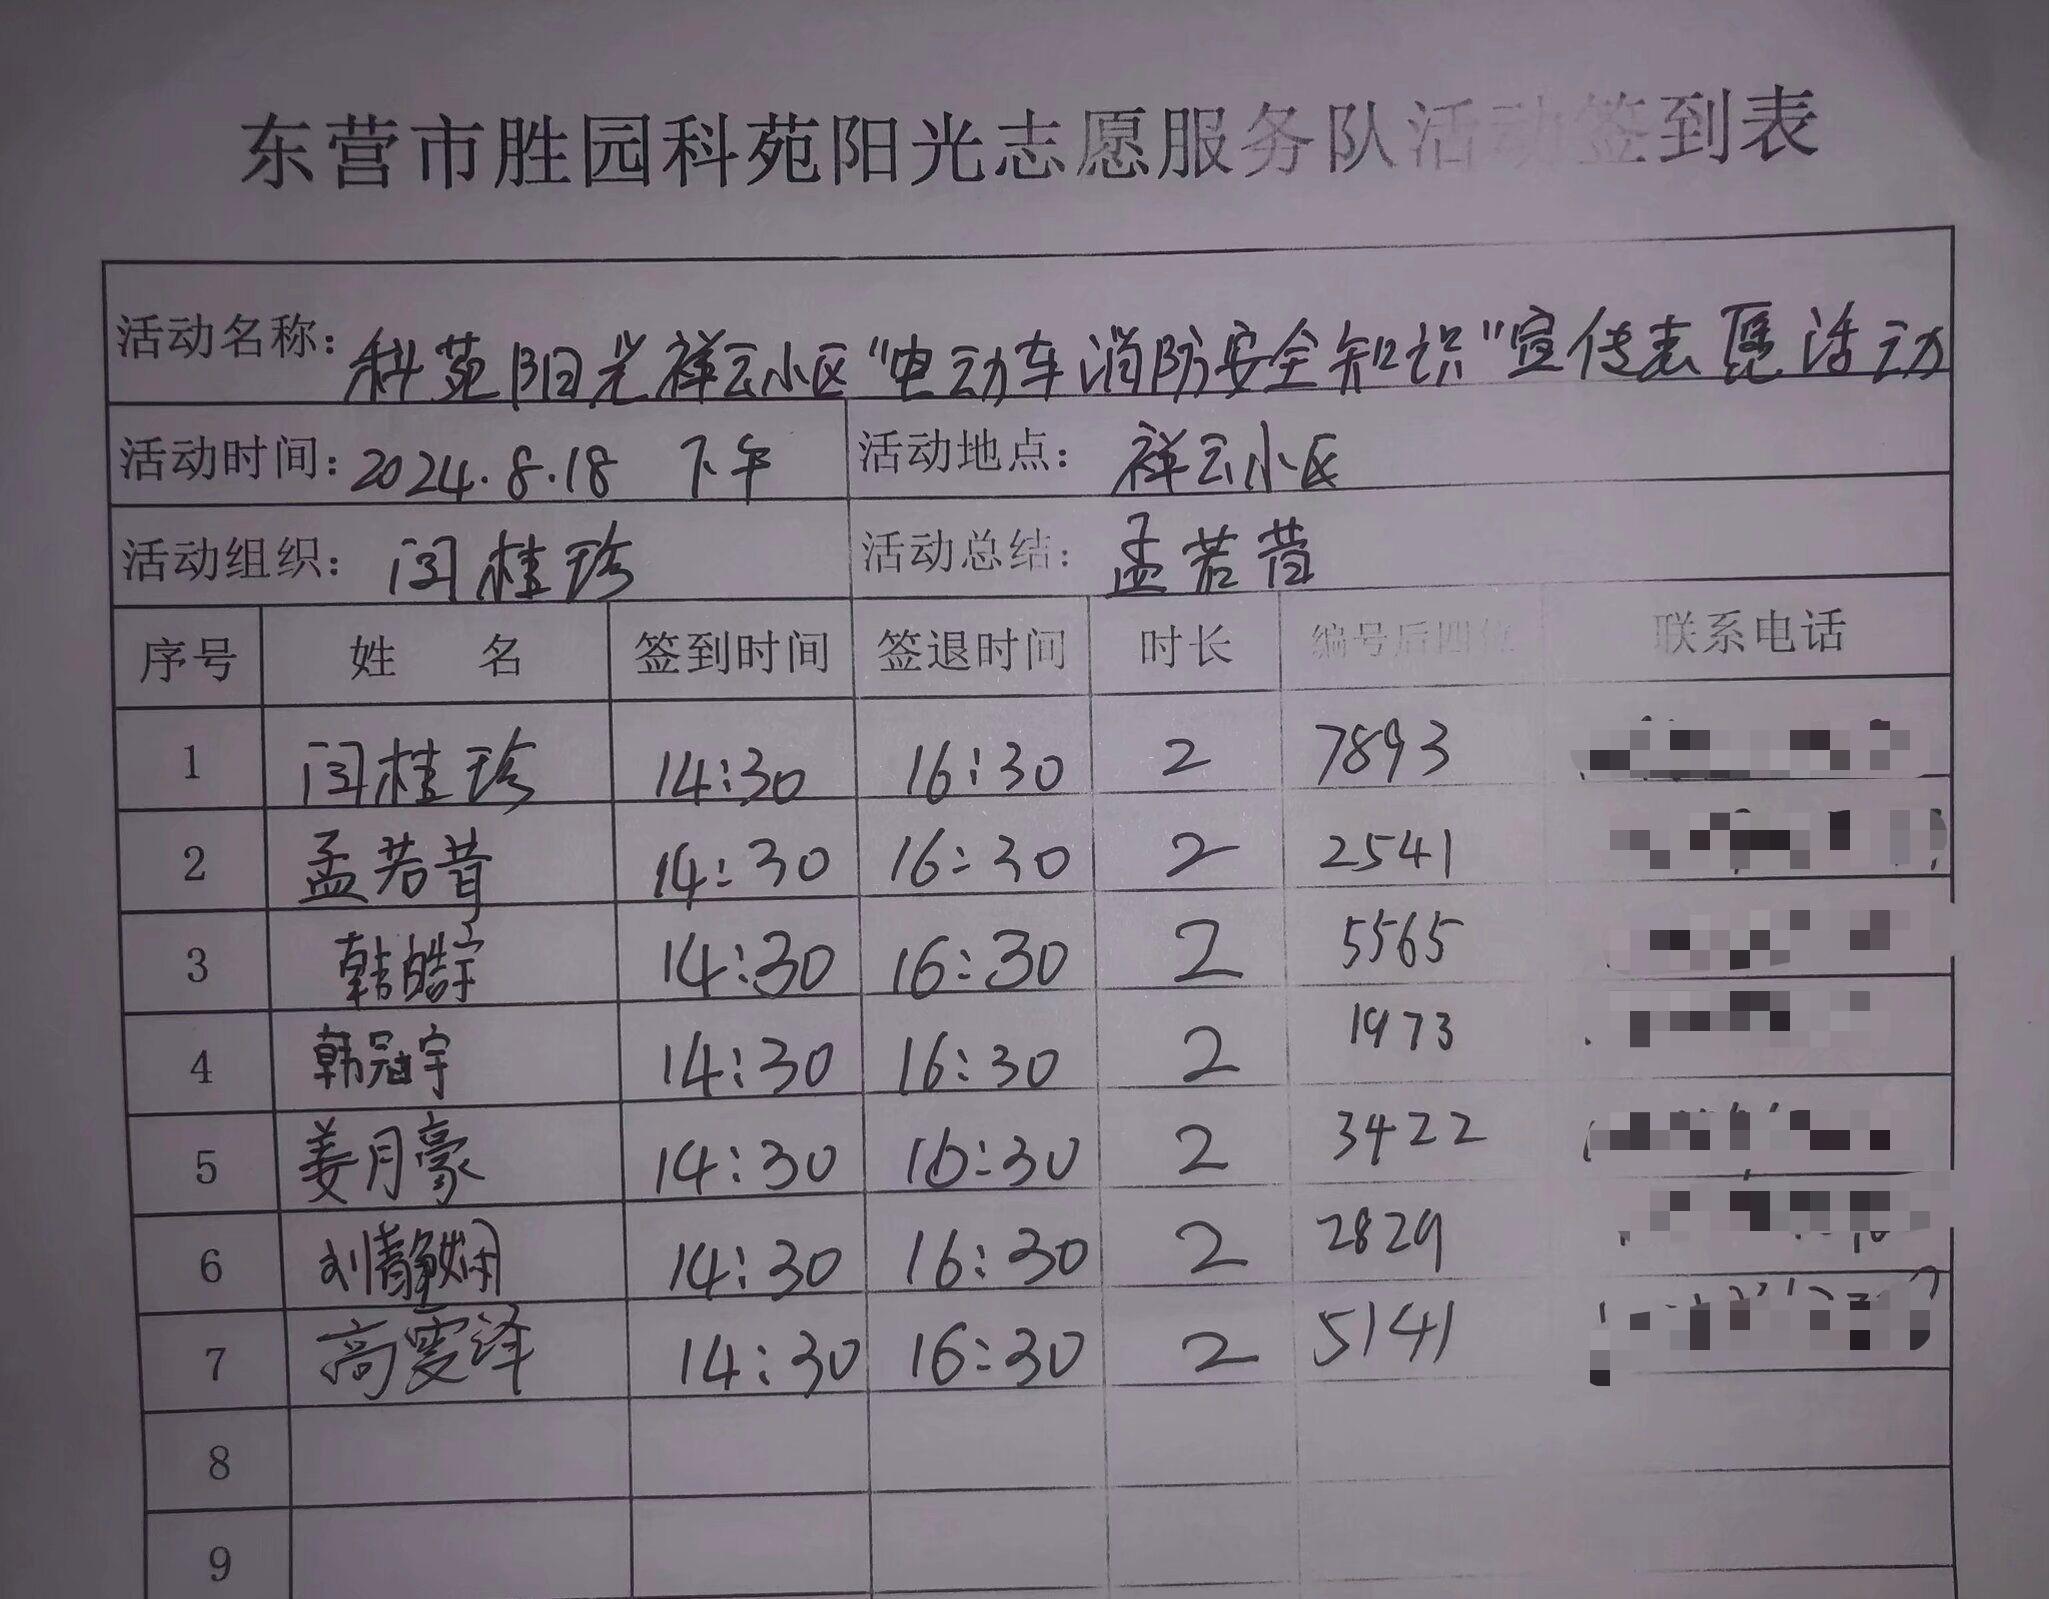 东营市胜园科苑阳光志愿服务队活动签到表
活动名称：科苑阳光祥云小区“电动车消防安全知识”宣传志愿活动
活动时间：2024.8.18 下午 活动地点：祥云小区
活动组织：闫桂珍 活动总结：孟若昔
序号 姓 名 签到时间 签退时间 时长 编号后四位 联系电话
1 闫桂珍 14:30 16:30 2 7893
2 孟若昔 14:30 16:30 2 2541
3 韩皓宇 14:30 16:30 2 5565
4 韩冠宇 14:30 16:30 2 1973
5 姜月豪 14:30 16:30 2 3422
6 刘静娴 14:30 16:30 2 2829
7 高雯泽 14:30 16:30 2 5141
8
9